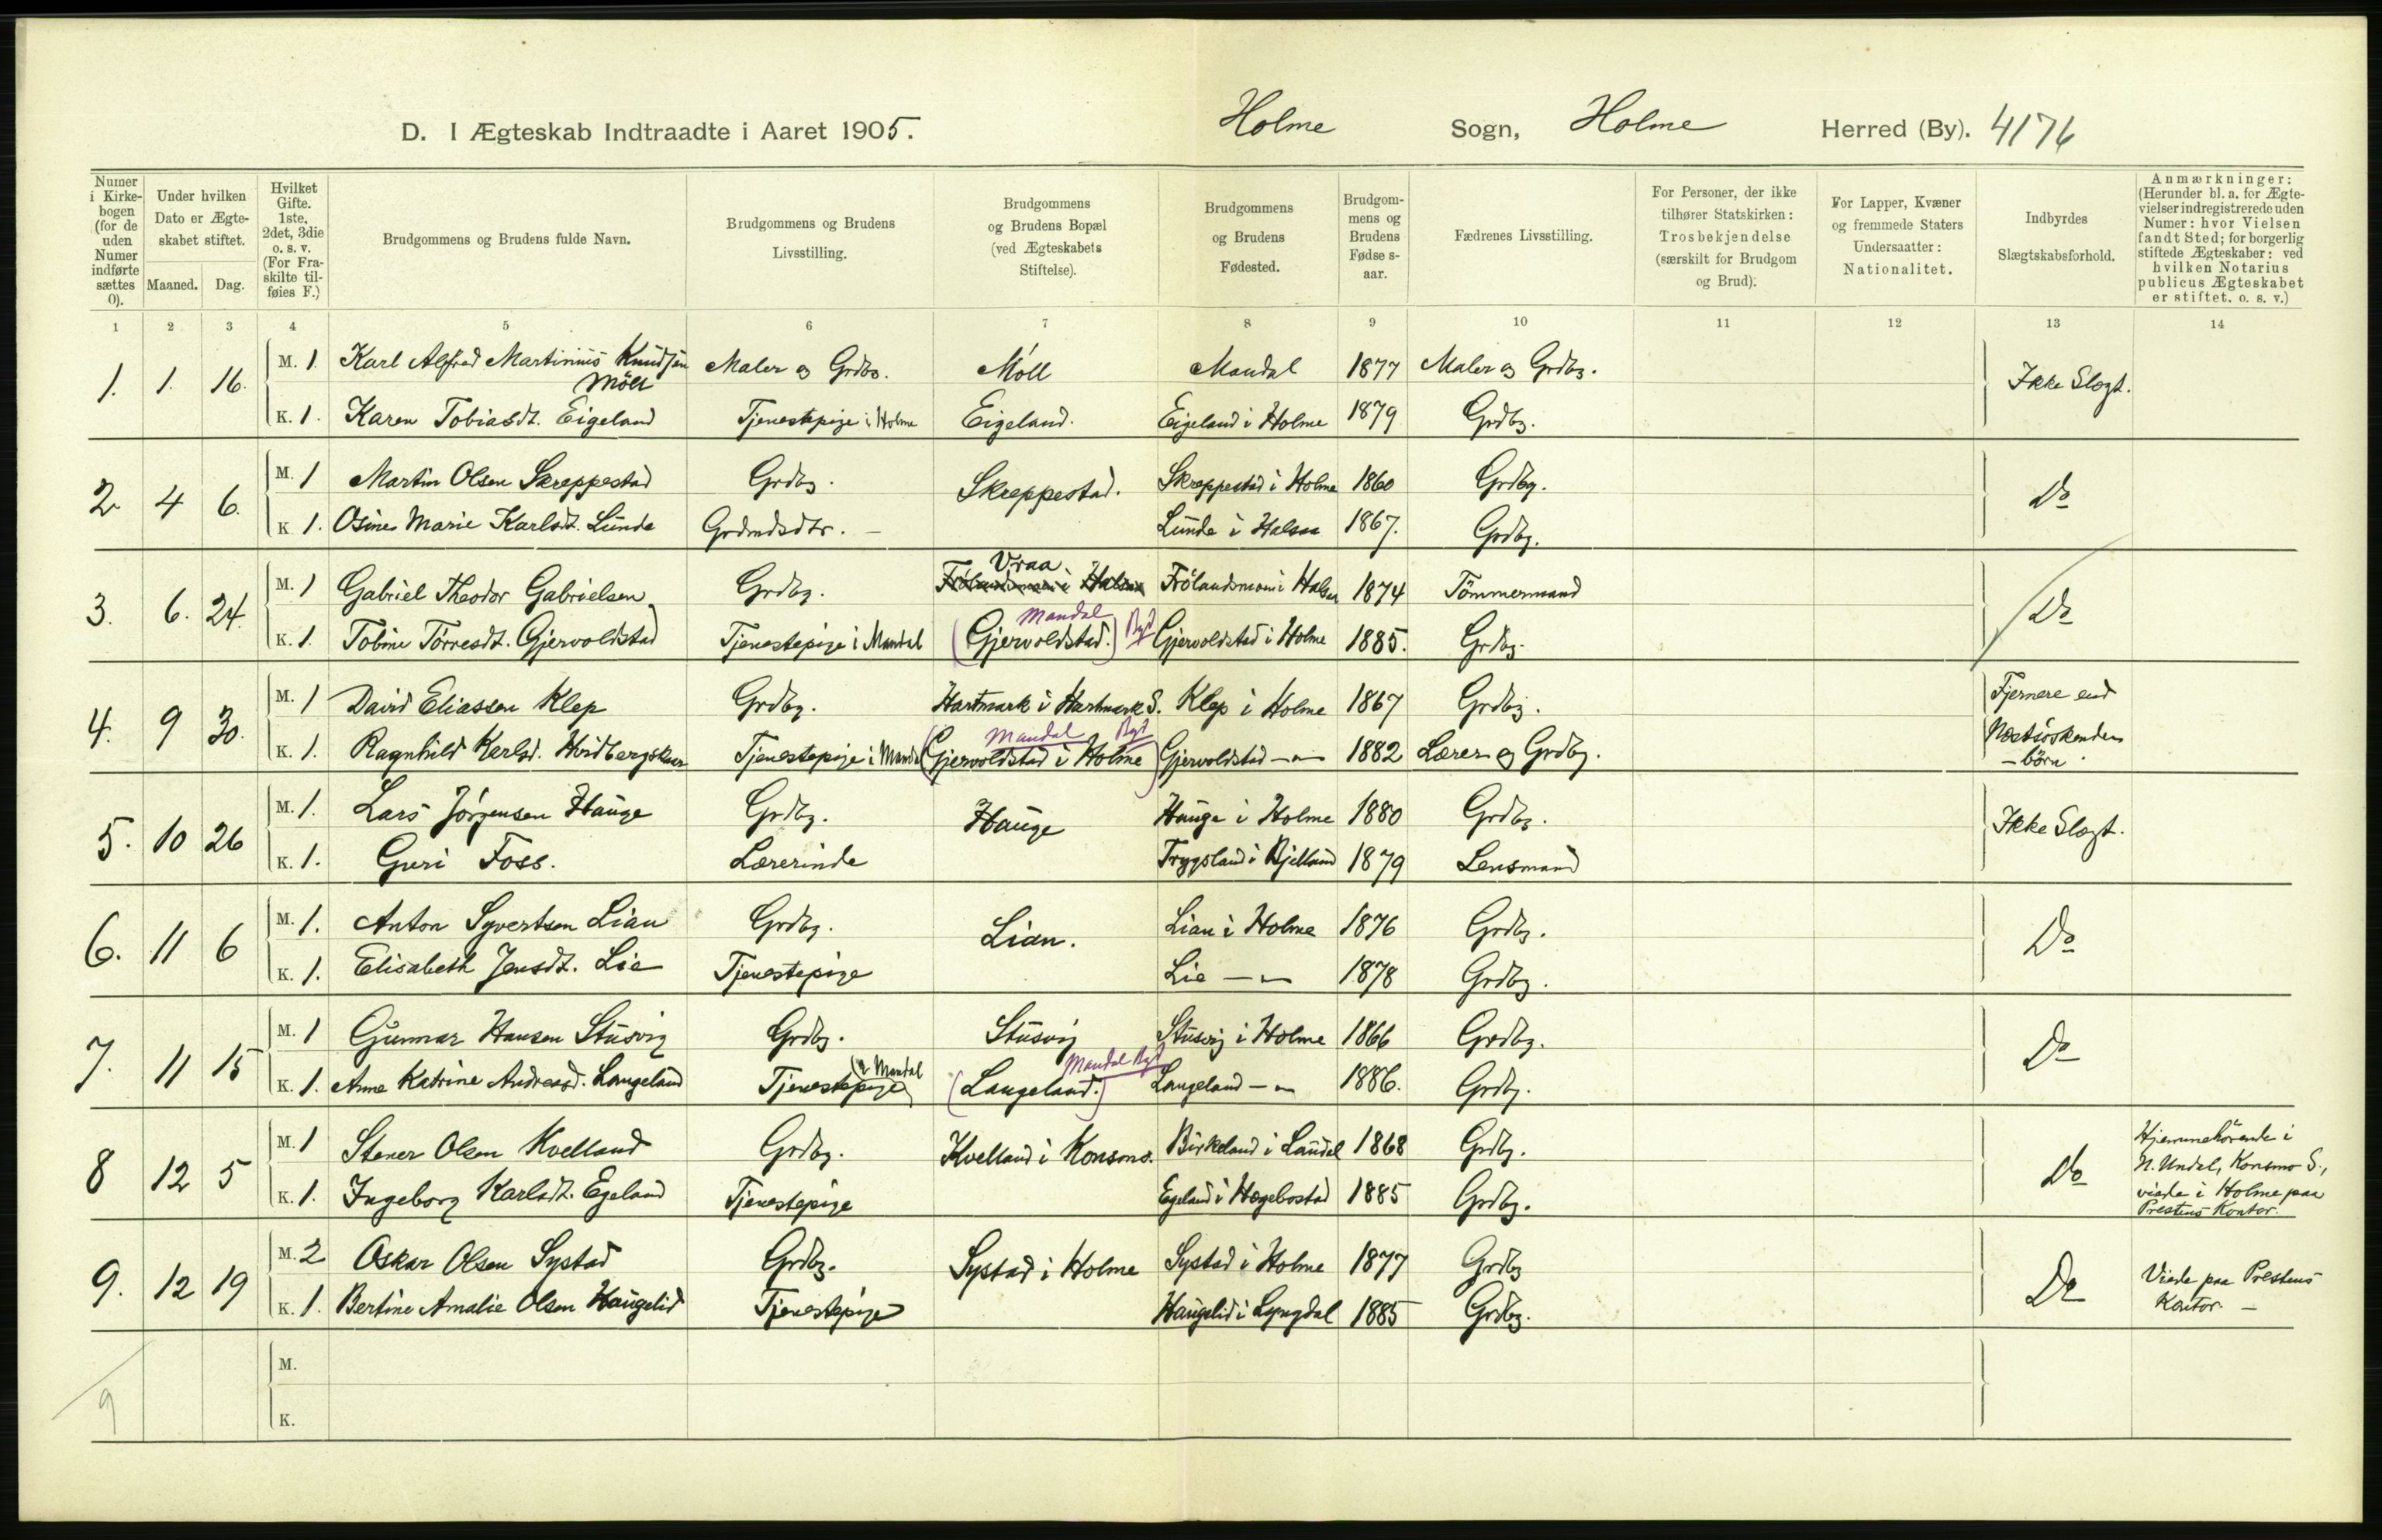 D. I Ægteskab Indtraadte i Aaret 1905. Holme Sogn, Holme Herred (By). 4176
Numer i Kirkebogen (for de uden Numer indførte sættes 0).
Under hvilken Dato er Ægteskabet stiftet.
Maaned. Dag.
Hvilket Gifte. 1ste, 2det, 3die o. s. v. (For Fraskilte tilføies F.)
Brudgommens og Brudens fulde Navn.
Brudgommens og Brudens Livsstilling.
Brudgommens og Brudens Bopæl (ved Ægteskabets Stiftelse).
Brudgommens og Brudens Fødested.
Brudgommens og Brudens Fødselsaar.
Fædrenes Livsstilling.
For Personer, der ikke tilhører Statskirken: Trosbekjendelse (særskilt for Brudgom og Brud).
For Lapper, Kvæner og fremmede Staters Undersaatter: Nationalitet.
Indbyrdes Slægtskabsforhold.
Anmærkninger: (Herunder bl. a. for Ægtevielser indregistrerede uden Numer: hvor Vielsen fandt Sted; for borgerlig stiftede Ægteskaber: ved hvilken Notarius publicus Ægteskabet er stiftet. o. s. v.)
1 2 3 4 5 6 7 8 9 10 11 12 13 14
1. 1. 16. M. 1 Karl Alfred Martinius Knudsen Möll Maler og Grdbr. Möll Mandal 1877 Maler og Grdbg. Ikke Slægt.
K. 1. Karen Tobiasdt. Eigeland Tjenestepige i Holme Eigeland. Eigeland i Holme 1879 Grdbg.
2. 4 6. M. 1 Martin Olsen Skreppestad Grdbg. Skreppestad. Skreppestad i Holme 1860 Grdbg. Do
K. 1. Osine Marie Karlsdt. Lunde Grdmdsdtr. — Lunde i Halsaa 1867. Grdbg.
3. 6. 24. M. 1 Gabriel Theodor Gabrielsen Grdbg. Vraa Frölandsmoen i Halsaa Frölandsmoen i Halsaa 1874 Tömmermand Do
K. 1. Tobine Törresdt. Gjervoldstad Tjenestepige i Mandal (Gjervoldstad.) Mandal Bgd Gjervoldstad i Holme 1885. Grdbg.
4. 9 30. M. 1 David Eliassen Klep Grdbg. Hartmark i Hartmark S. Klep i Holme 1867 Grdbg. Fjernere end Næstsöskendebörn.
K. 1. Ragnhild Karlsd. Hvidbergskaar Tjenestepige i Mandal (Gjervoldstad i Holme) Mandal Bgd Gjervoldstad — " — 1882 Lærer og Grdbg.
5. 10 26 M. 1. Lars Jörgensen Hauge Grdbg. Hauge Hauge i Holme 1880 Grdbg. Ikke Slægt.
K. 1. Guri Foss. Lærerinde Trygsland i Bjelland 1879 Lensmand
6. 11 6 M. 1. Anton Syvertsen Lian Grdbg. Lian. Lian i Holme 1876 Grdbg. Do
K. 1. Elisabeth Jensdt. Lie Tjenestepige Lie — " — 1878 Grdbg.
7. 11 15 M. 1 Gunnar Hansen Stusvig Grdbg. Stusvig Stusvig i Holme 1866 Grdbg. Do
K. 1. Anne Katrine Andreasd. Langeland Tjenestepige (i Mandal) (Langeland.) Mandal Bgd Langeland — " — 1886. Grdbg.
8 12 5 M. 1 Stener Olsen Kvelland Grdbg. Kvelland i Konsmo. Birkeland i Laudal 1868 Grdbg. Do Hjemmehörende i N. Undal, Konsmo S., viede i Holme paa Prestens Kontor.
K. 1. Ingeborg Karlsdt. Egeland Tjenestepige Egeland i Hægebostad 1885 Grdbg.
9. 12 19 M. 2 Oskar Olsen Systad Grdbg. Systad i Holme Systad i Holme 1877 Grdbg Do Viede paa Prestens Kontor. —
K. 1. Bertine Amalie Olsen Haugelid Tjenestepige Haugelid i Lyngdal 1885 Grdbg.
M.
9
K.